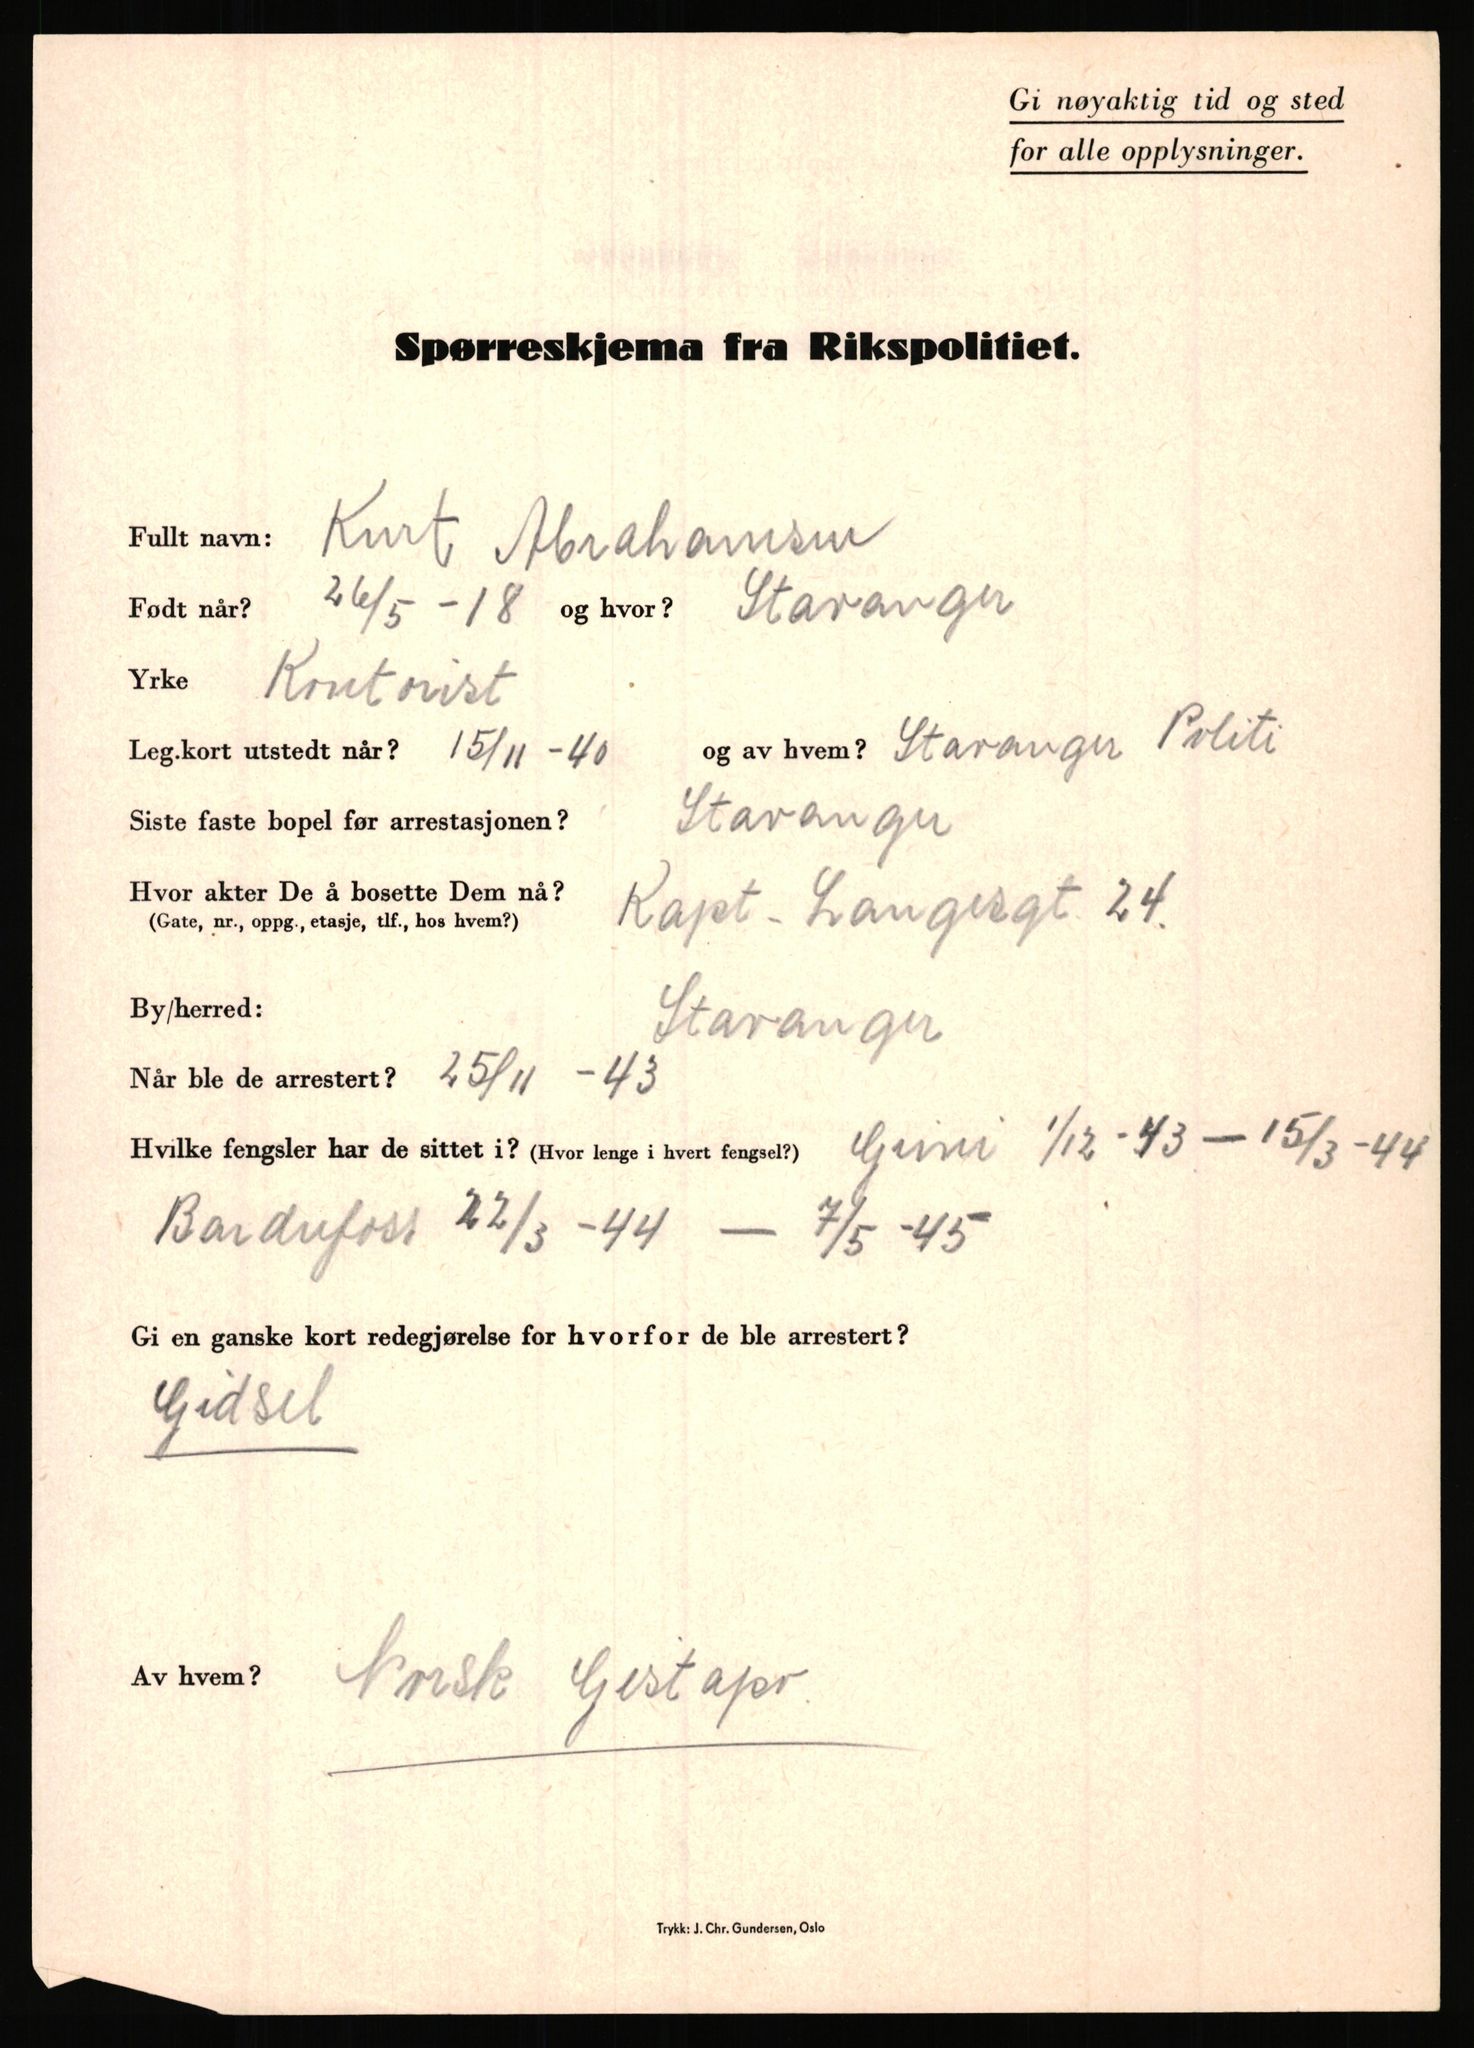 Gi nøyaktig tid og sted
for alle opplysninger.
Spørreskjema fra Rikspolitiet.
Fullt navn: Kurt Abrahamsen
Født når? 26/5 - 18 og hvor? Stavanger
Yrke Kontorist
Leg.kort utstedt når? 15/11 - 40 og av hvem? Stavanger Politi
Siste faste bopel før arrestasjonen? Stavanger
Hvor akter De å bosette Dem nå? Kapt - Langesgt 24.
(Gate, nr., oppg., etasje, tlf., hos hvem?)
By/herred: Stavanger
Når ble de arrestert? 25/11 - 43
Hvilke fengsler har de sittet i? (Hvor lenge i hvert fengsel?) Grini 1/12 - 43 — 15/3 - 44
Bardufoss 22/3 - 44 — 7/5 - 45
Gi en ganske kort redegjørelse for hvorfor de ble arrestert?
Gidsel
Av hvem? Norsk Gestapo.
Trykk: J. Chr. Gundersen, Oslo